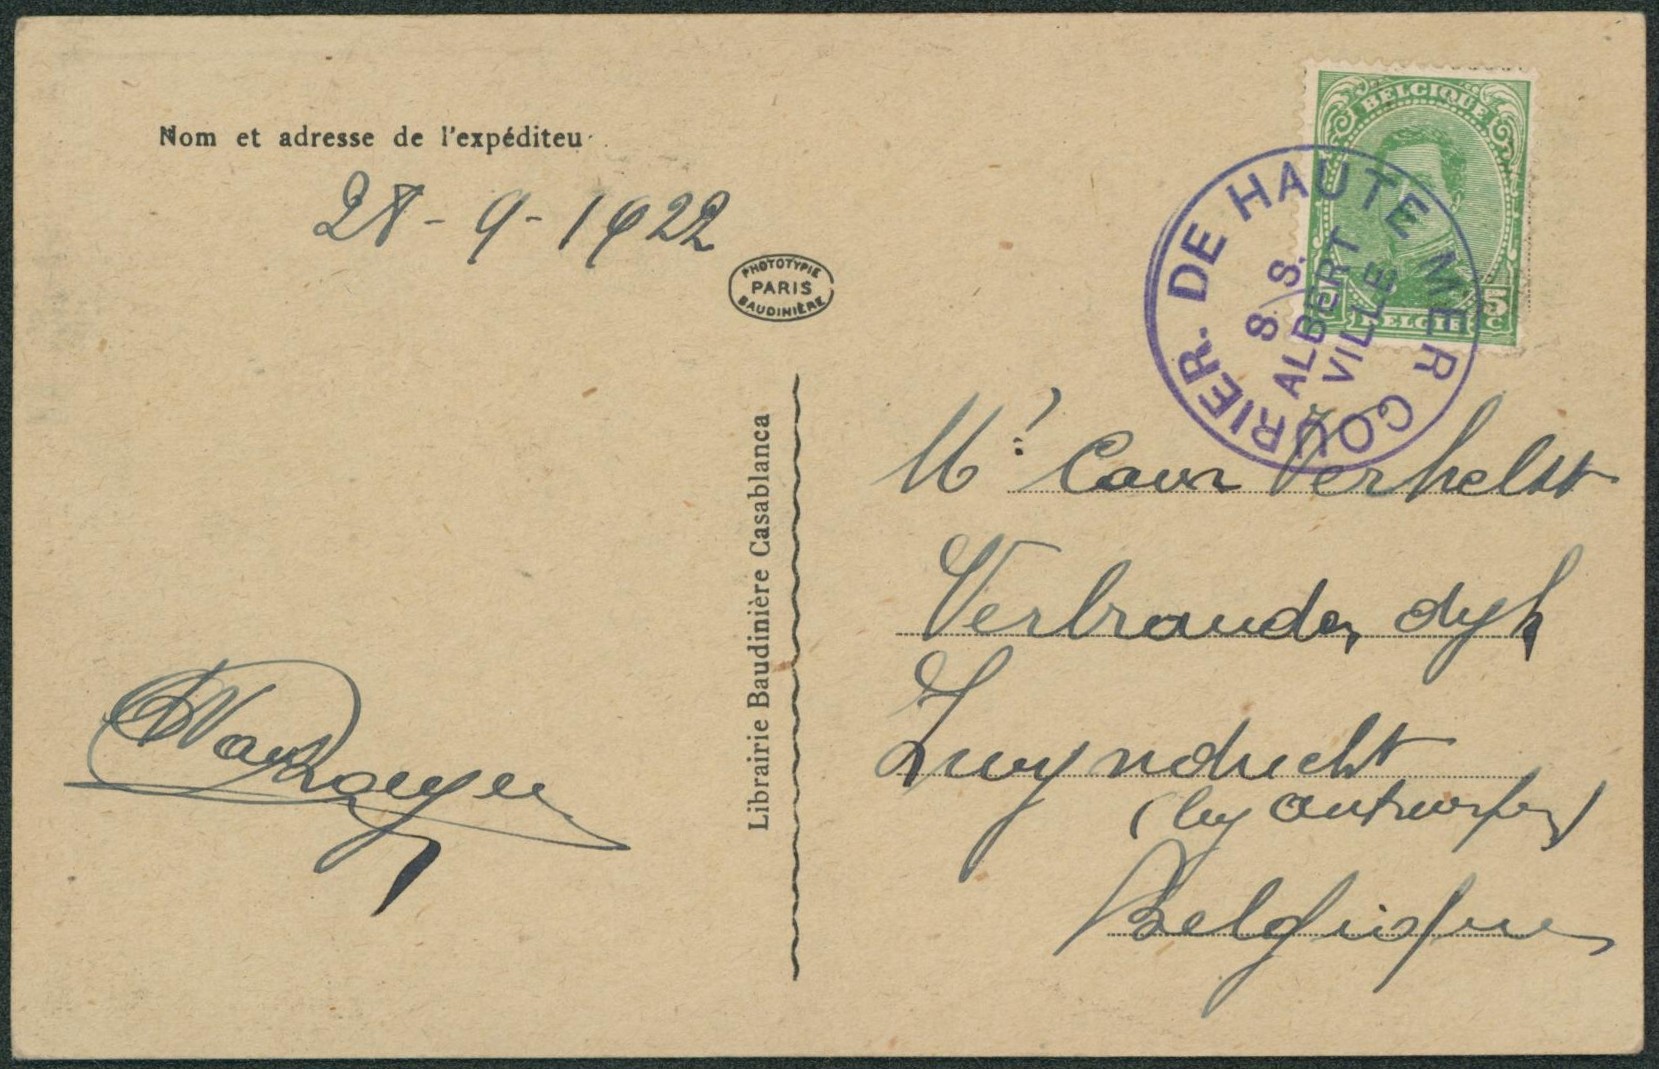 Nom et adresse de l'expéditeu
28-9-1922
PHOTOTYPIE
PARIS
BAUDINIÈRE
Librairie Baudinière Casablanca
BELGIQUE
5
5 C
BELGIË
COURIER. DE HAUTE MER
S. S.
ALBERT
VILLE
Mr Verhelst
Verbranden dyk
Zwyndrecht
(by Antwerpen)
Belgique